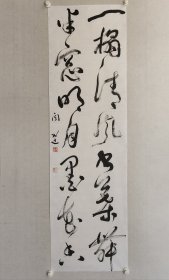 一榻清風書葉舞
半窗明月墨花香